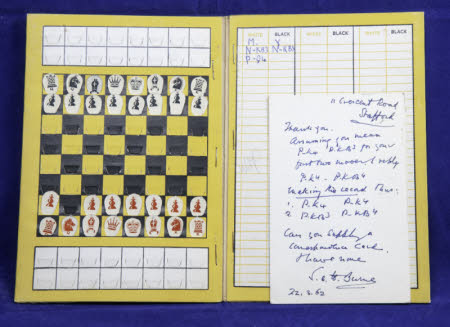 WHITE BLACK WHITE BLACK WHITE BLACK
M. Y
N-KB3 N-KB3
P-Q4
11 Crescent Road
Stafford
Thank you.
Assuming you mean
P.K4 P.KB3 for your
first two moves, I reply
P.K4. P.KB4
making the second Thus:
1. P.K4 P.K4
2 P.KB3 P-KB4
Can you supply a
card.
I have none
22.2.62